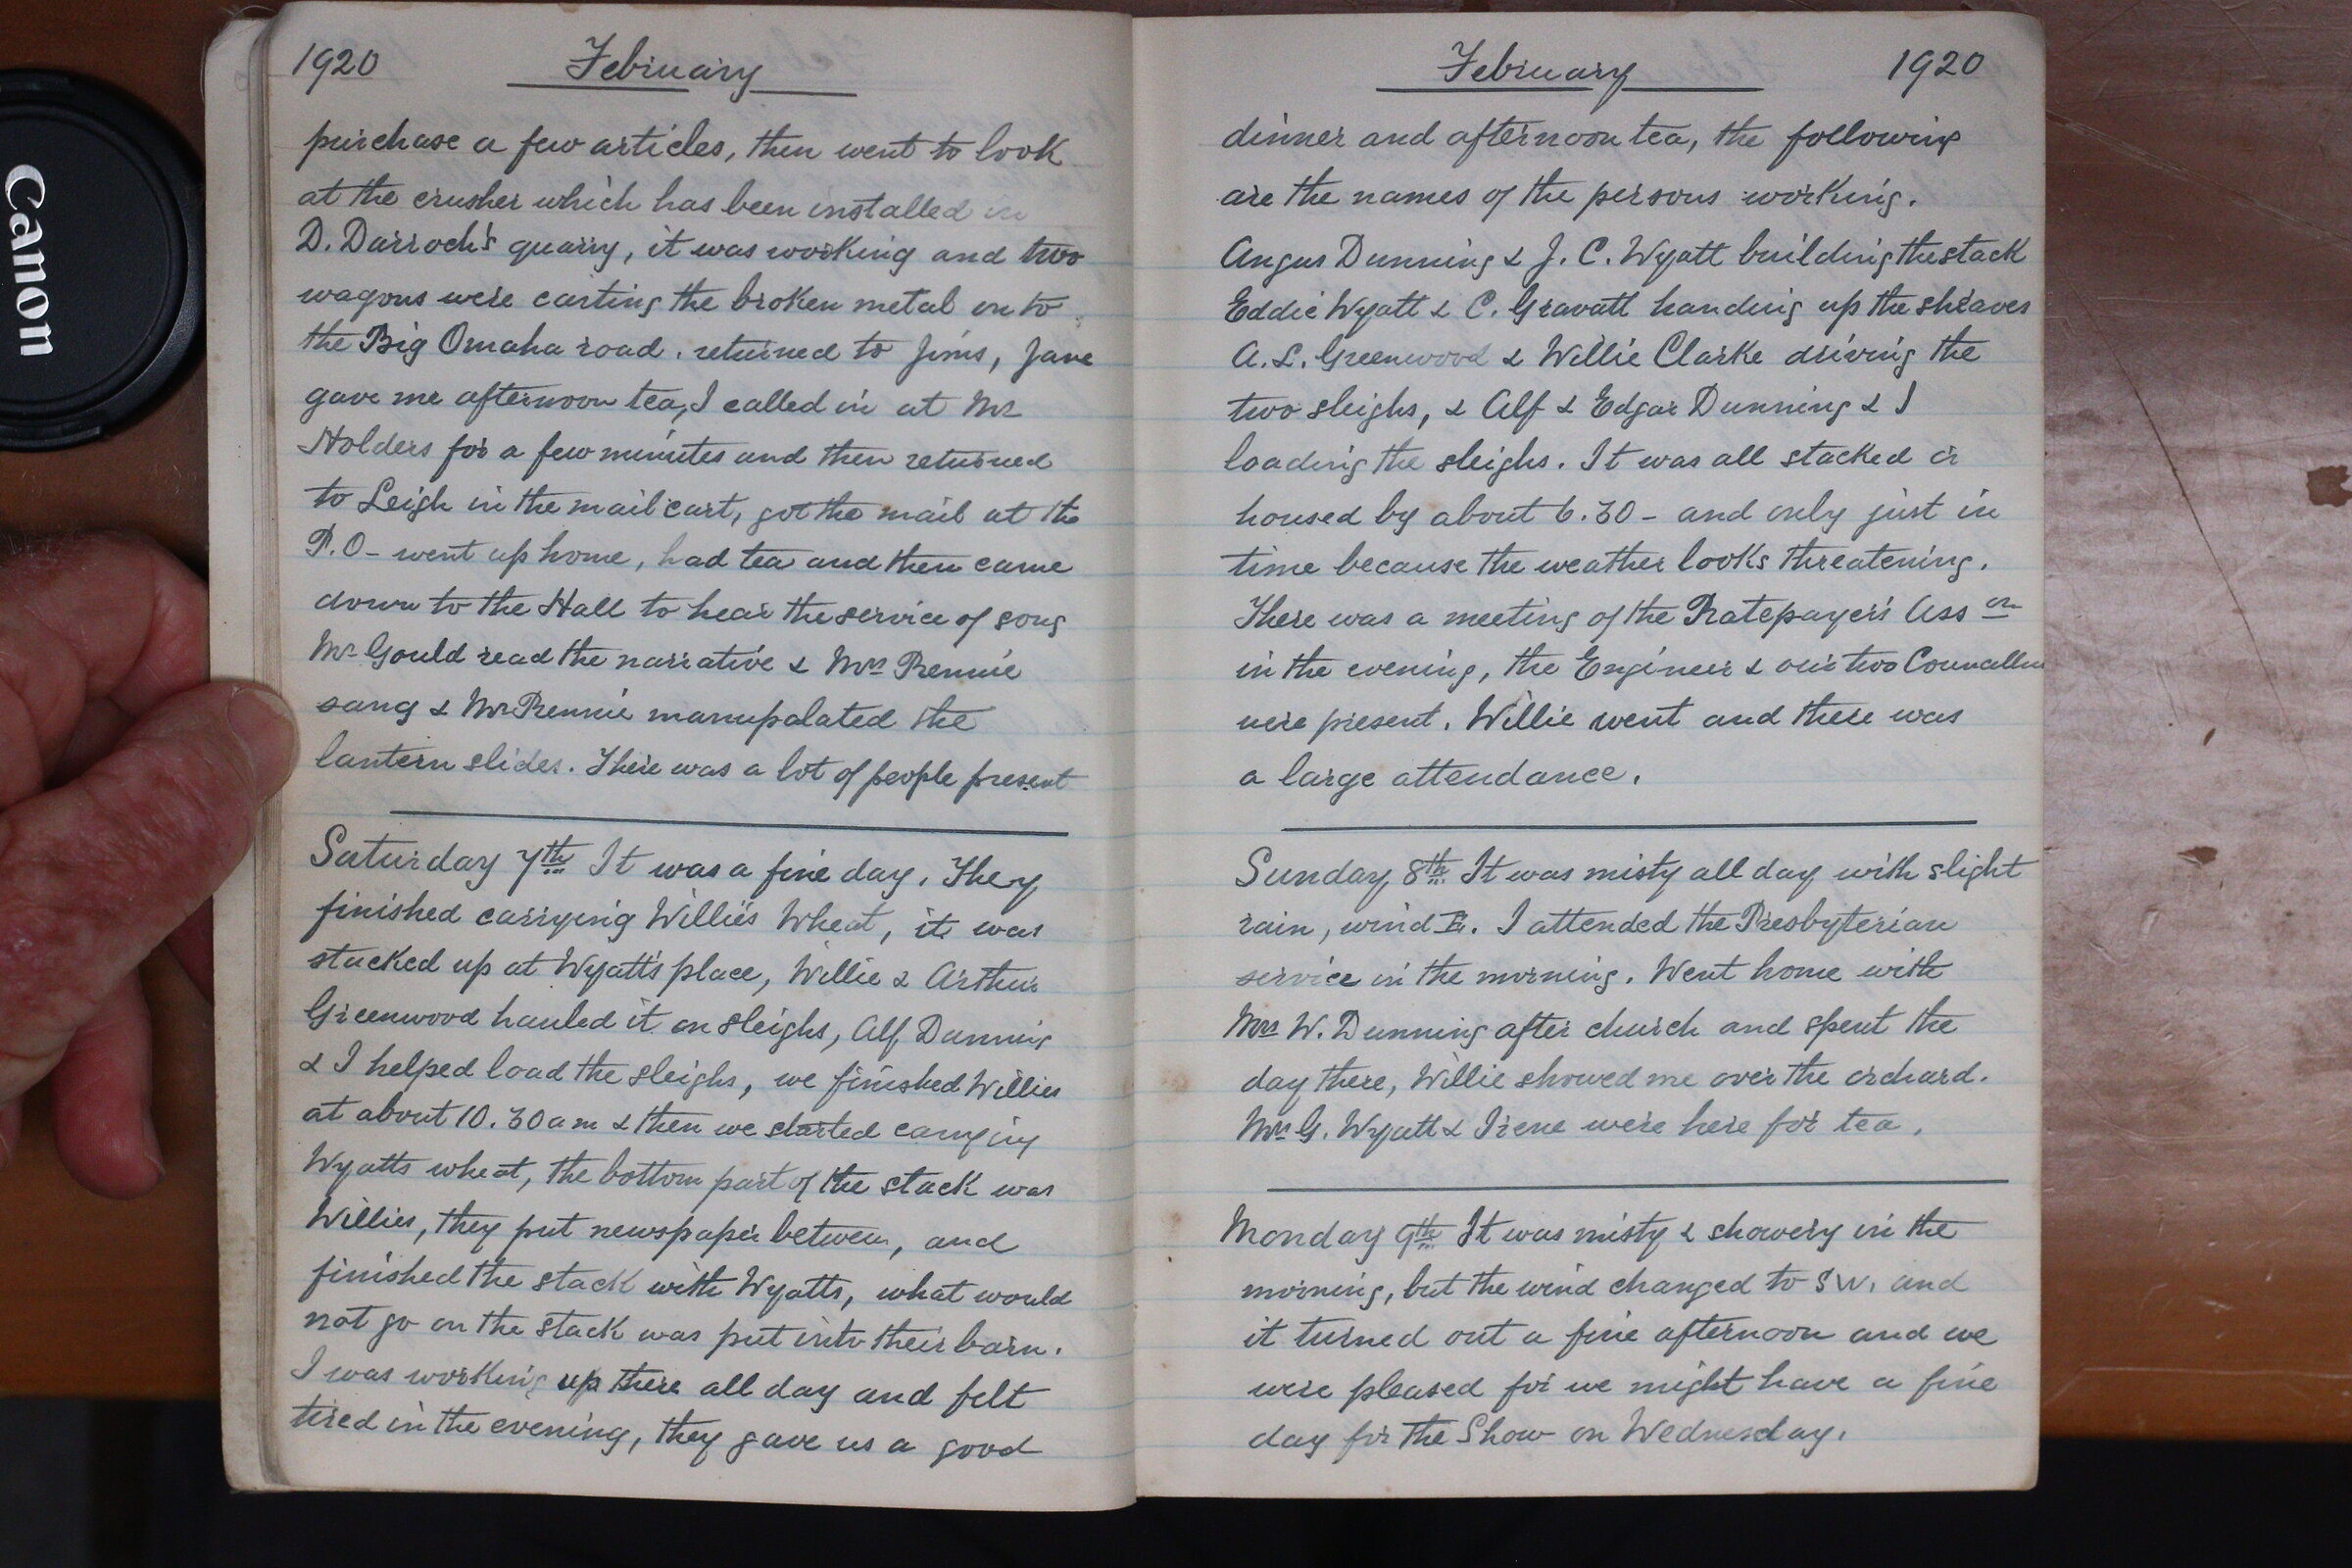 Canon
1920 February
purchase a few articles, then went to look
at the crusher which has been installed in
D. Darroch's quarry, it was working and two
wagons were carting the broken metal on to
the Big Omaha road. returned to Jim's, Jane
gave me afternoon tea, I called in at Mr
Holders for a few minutes and then returned
to Leigh in the mail cart, got the mail at the
P.O- went up home, had tea and then came
down to the Hall to hear the service of song
Mr Gould read the narrative & Mrs Rennie
sang & Mr Rennie manupalated the
lantern slides. There was a lot of people present
Saturday 7th It was a fine day. They
finished carrying Willie's Wheat, it was
stacked up at Wyatt's place, Willie & Arthur
Greenwood hauled it on sleighs, Alf Dunning
& I helped load the sleighs, we finished Willies
at about 10.30 am & then we started carrying
Wyatts wheat, the bottom part of the stack was
Willies, they put newspaper between, and
finished the stack with Wyatts, what would
not go on the stack was put into their barn.
I was working up there all day and felt
tired in the evening, they gave us a good
February 1920
dinner and afternoon tea, the following
are the names of the persons working.
Angus Dunning & J. C. Wyatt building the stack
Eddie Wyatt & C. Gravatt handing up the sheaves
A. L. Greenwood & Willie Clarke driving the
two sleighs, & Alf & Edgar Dunning & I
loading the sleighs. It was all stacked or
housed by about 6.30 - and only just in
time because the weather looks threatening.
There was a meeting of the Ratepayer's Ass on
in the evening, the Engineer & our two
were present. Willie went and there was
a large attendance.
Sunday 8th It was misty all day with slight
rain, wind E. I attended the Presbyterian
service in the morning. Went home with
Mrs W. Dunning after church and spent the
day there, Willie showed me over the orchard.
Mrs G. Wyatt & Irene were here for tea.
Monday 9th It was misty & showery in the
morning, but the wind changed to SW. and
it turned out a fine afternoon and we
were pleased for we might have a fine
day for the Show on Wednesday.